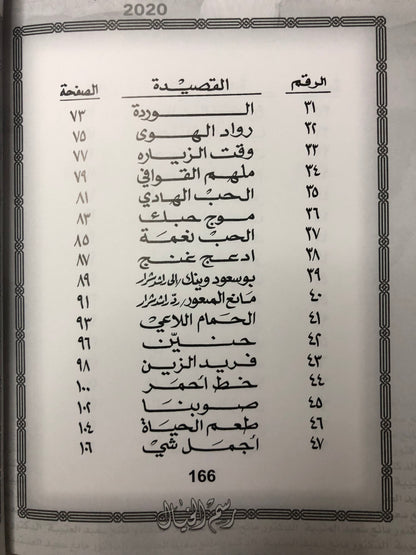 2020
الرقم القصيدة الصفحة
٣١ الوردة ٧٣
٣٢ رواد الهوى ٧٥
٣٣ وقت الزياره ٧٧
٣٤ ملهم القوافي ٧٩
٣٥ الحب الهادي ٨١
٣٦ موج حبك ٨٣
٣٧ الحب نغمة ٨٥
٣٨ ادعج غنج ٨٧
٣٩ بوسعود وينك/إلى راشد شرار ٨٩
٤٠ مانع المسعود/ردّ راشد شرار ٩١
٤١ الحمام اللاعي ٩٣
٤٢ حنين ٩٦
٤٣ فريد الزين ٩٨
٤٤ خط احمر ١٠٠
٤٥ صوبنا ١٠٢
٤٦ طعم الحياة ١٠٤
٤٧ اجمل شي ١٠٦
166
رسم الخيال